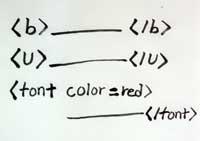 <b>______</b>
<u>______</u>
<font color=red>
______</font>